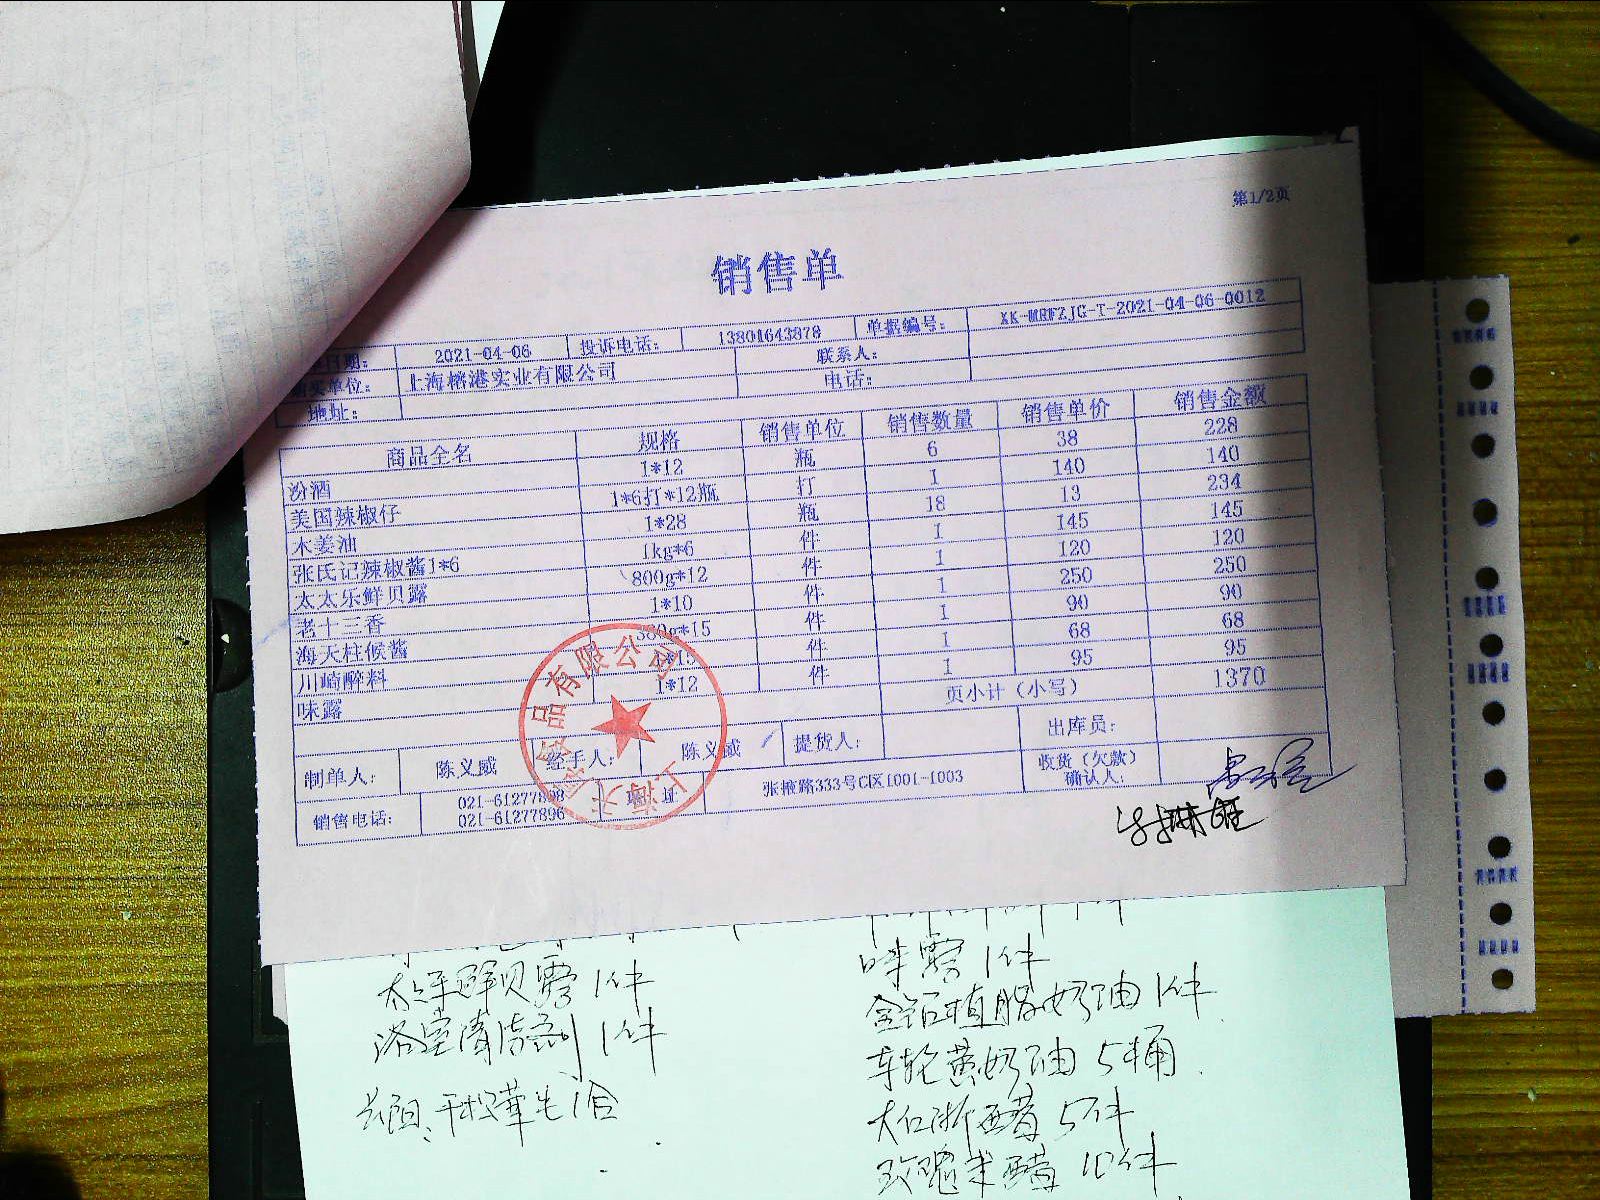 第1/2页
销售单
日期： 2021-04-06 投诉电话： 13801643878 单据编号： XK-MRFZJG-T-2021-04-06-0012
购买单位： 上海榕港实业有限公司 联系人：
地址： 电话：
商品全名 规格 销售单位 销售数量 销售单价 销售金额
汾酒 1*12 瓶 6 38 228
美国辣椒仔 1*6打*12瓶 打 1 140 140
木姜油 1*28 瓶 18 13 234
张氏记辣椒酱1*6 1kg*6 件 1 145 145
太太乐鲜贝露 800g*12 件 1 120 120
老十三香 1*10 件 1 250 250
海天柱候酱 380g*15 件 1 90 90
川崎醉料 1*15 件 1 68 68
味露 1*12 件 1 95 95
页小计（小写） 1370
制单人： 陈义威 经手人： 陈义威 提货人： 出库员：
销售电话： 021-61277898 地址 张掖路333号C区1001-1003 收货（欠款）
021-61277896 确认人：
太太乐鲜贝露 1件
浴室清洁剂 1件
味露 1件
金钻植脂奶油 1件
车轮黄奶油 5桶
大红浙醋 5件
玫瑰米醋 10件